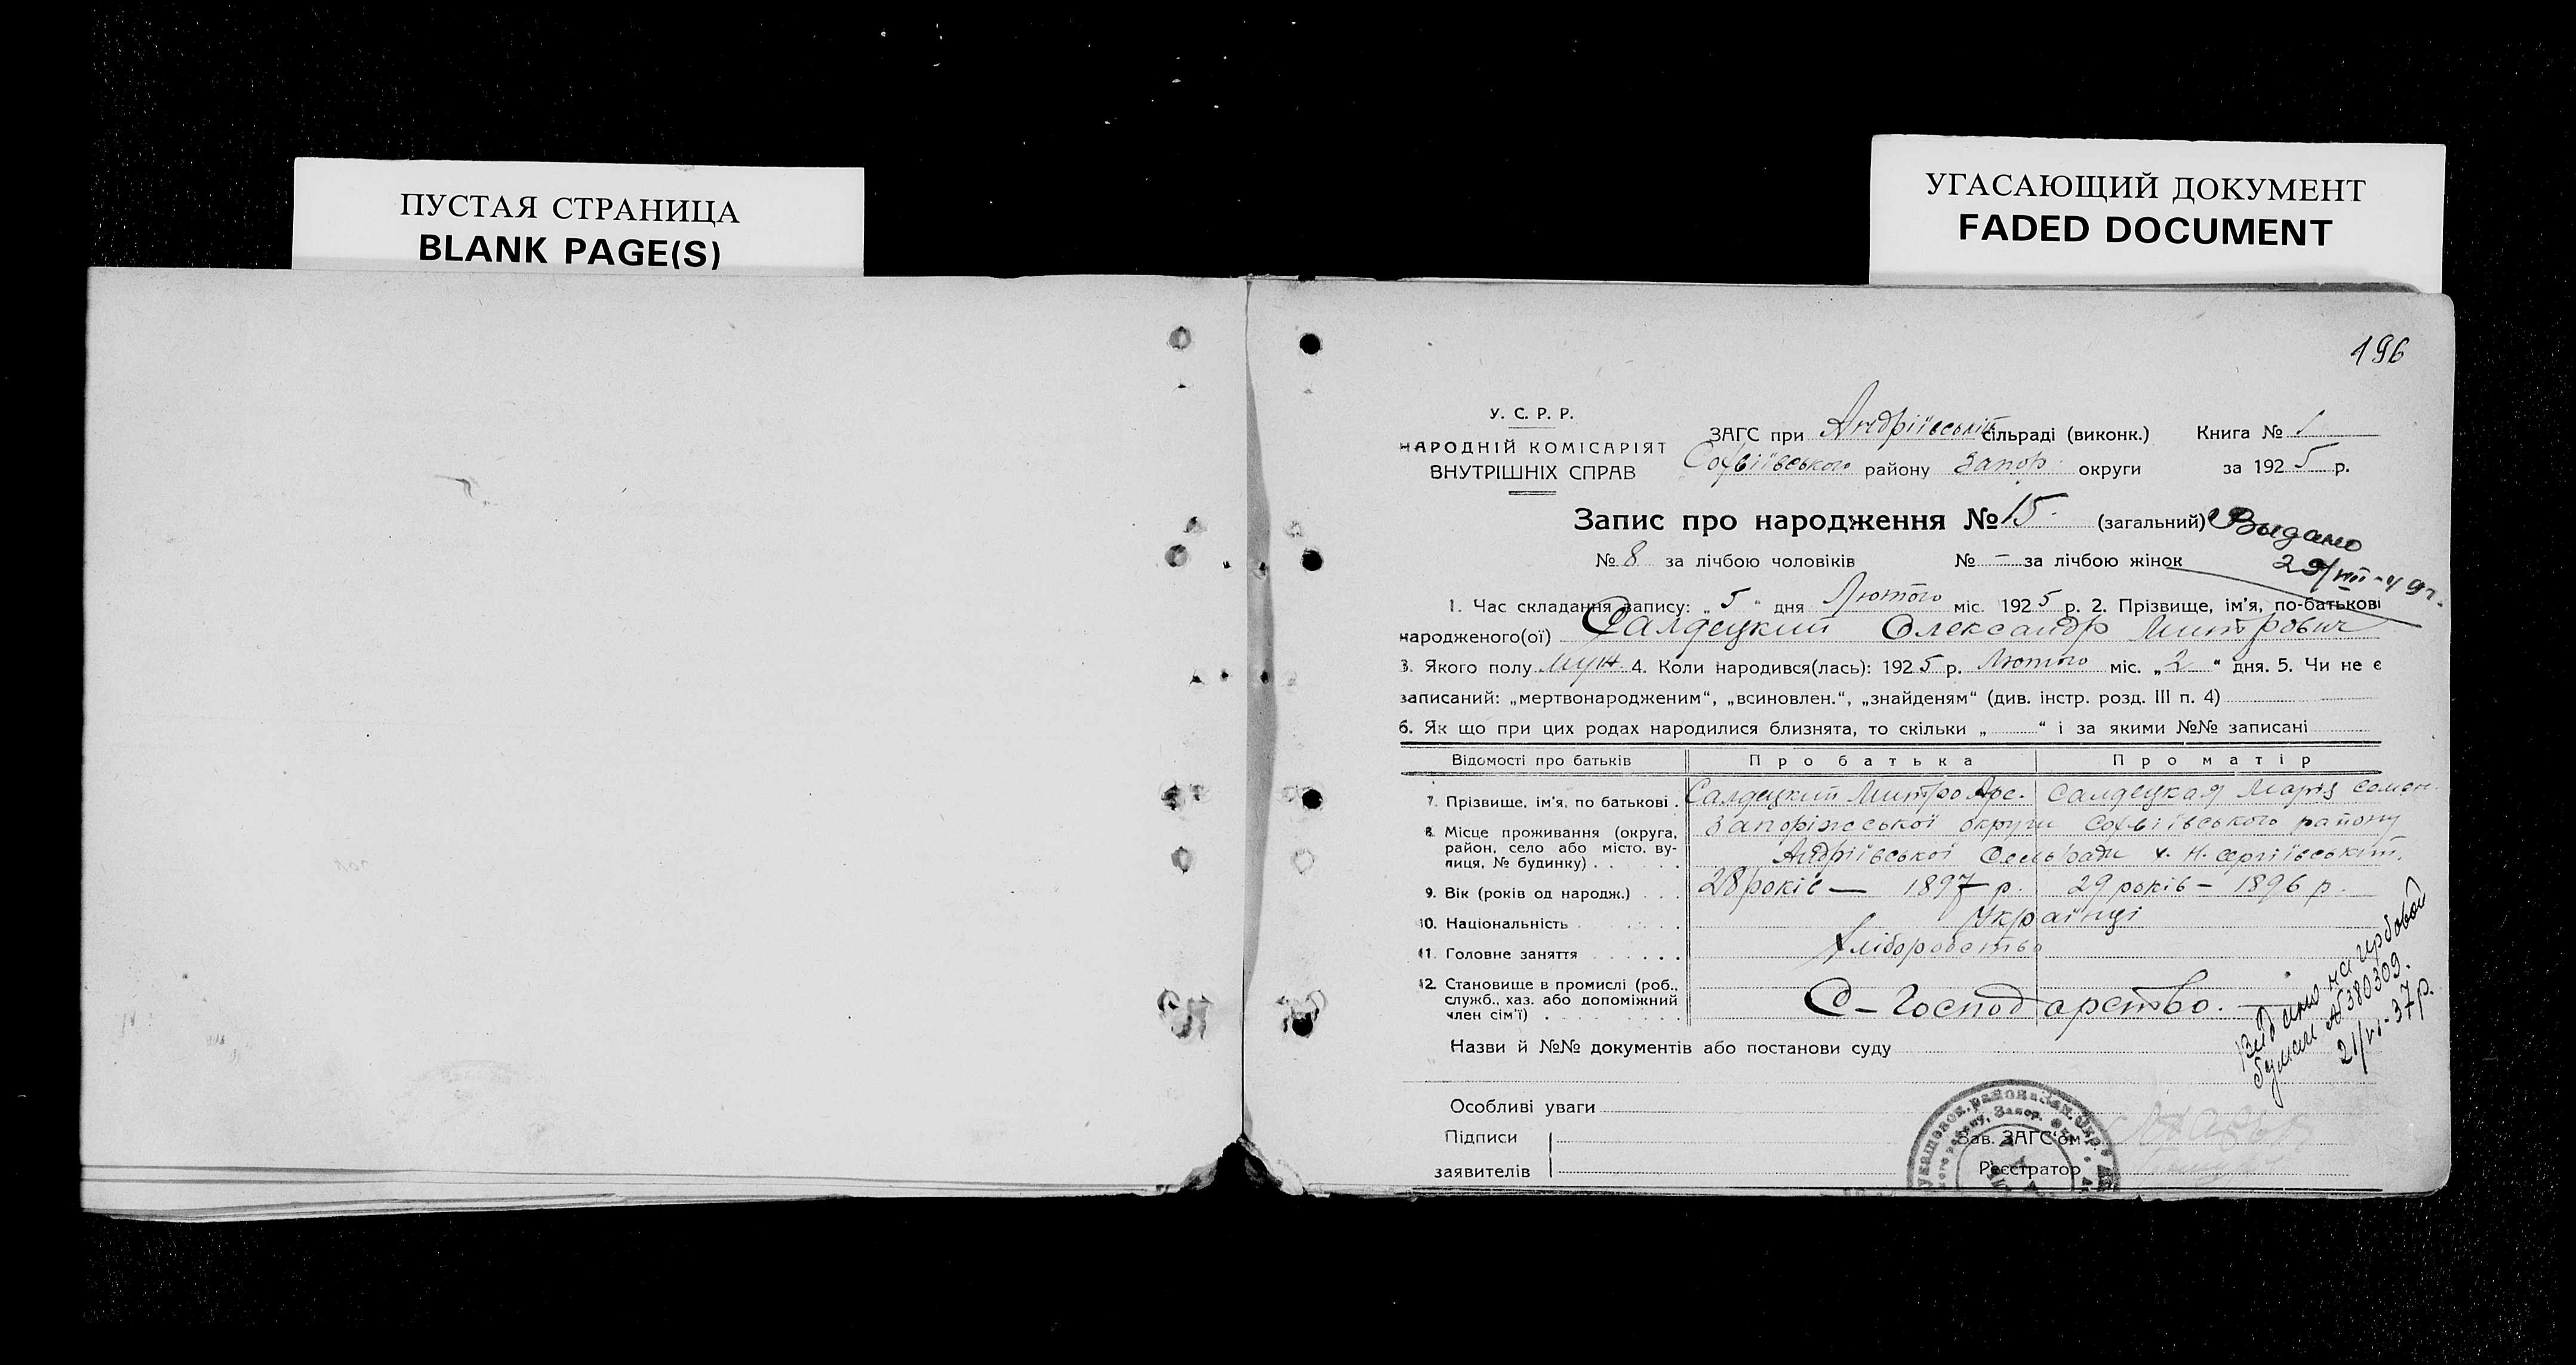 ПУСТАЯ СТРАНИЦА
BLANK PAGE(S)
УГАСАЮЩИЙ ДОКУМЕНТ
FADED DOCUMENT
196
У. С. Р. Р.
НАРОДНІЙ КОМІСАРІЯТ
ВНУТРІШНІХ СПРАВ
ЗАГС при Андріївській сільраді (виконк.) Книга № 1
Софіївського району Запор. округи за 1925 р.
Запис про народження № 15. (загальний)
Выдано
29/VIII-49г.
№ 8 за лічбою чоловіків № – за лічбою жінок
1. Час складання запису: „5“ дня Лютого міс. 1925 р. 2. Прізвище, ім’я, по-батькові
народженого(ої) Салдецкий Олександр Митрович
3. Якого полу муж. 4. Коли народився(лась): 1925 р. Лютого міс. „2“ дня. 5. Чи не є
записаний: „мертвонародженим“, „всиновлен.“, „знайденям“ (див. інстр. розд. III п. 4)
6. Як що при цих родах народилися близнята, то скільки „ “ і за якими №№ записані
Відомості про батьків Про батька Про матір
7. Прізвище, ім’я, по батькові Салдецкий Митро Арс. Салдецкая Марія Семен.
8. Місце проживання (округа, район, село або місто, вулиця, № будинку) Запоріжської округи Софіївського району
Андріївської Сельради х. Н. Сергіївський.
9. Вік (років од народж.) 28 років — 1897 р. 29 років – 1896 р.
10. Національність Українці
11. Головне заняття Хліборобство
12. Становище в промислі (роб., служб., хаз. або допоміжний член сім’ї) С – Господарство.
Видано на гербовой
бумаге № 380309.
21/VI-37р.
Назви й №№ документів або постанови суду
Особливі уваги
Підписи
заявителів
Зав. ЗАГС’ом
Реєстратор